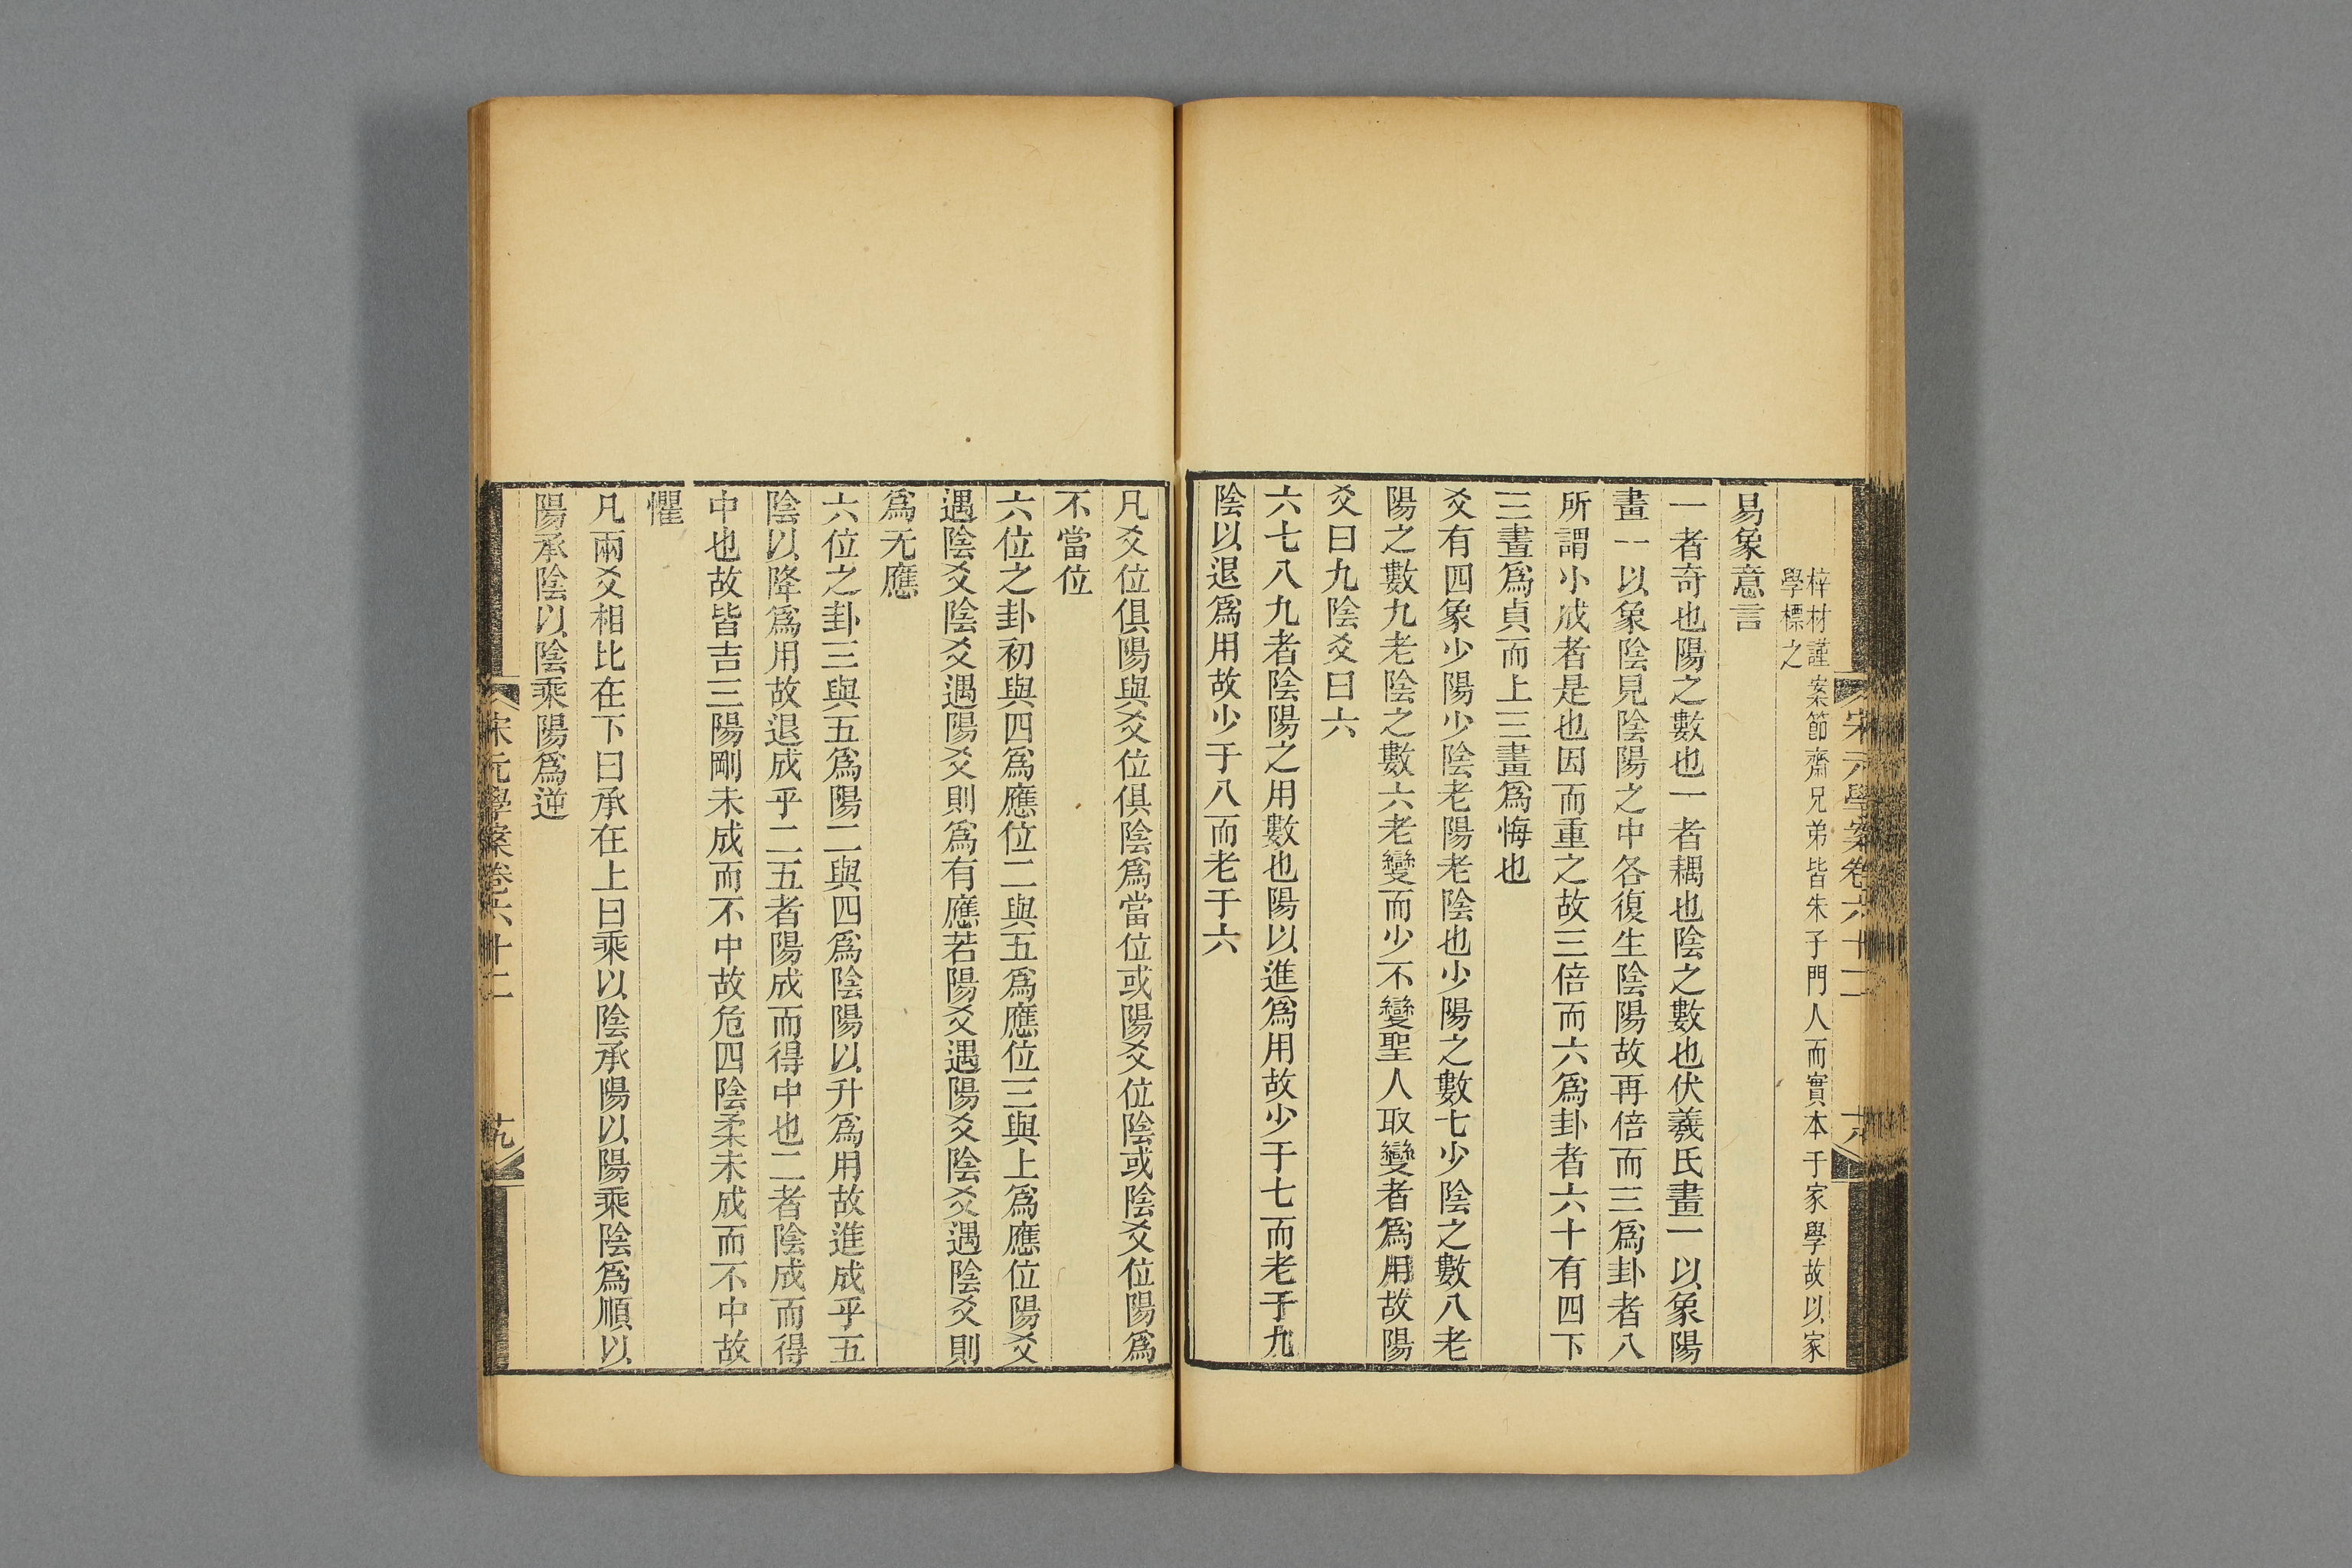 宋元學案卷六十二
梓材謹案節齋兄弟皆朱子門人而實本于家學故以家
學標之
易象意言
一者奇也陽之數也一者耦也陰之數也伏羲氏畫一以象陽
畫一以象陰見陰陽之中各復生陰陽故再倍而三爲卦者八
所謂小成者是也因而重之故三倍而六爲卦者六十有四下
三畫爲貞而上三畫爲悔也
爻有四象少陽少陰老陽老陰也少陽之數七少陰之數八老
陽之數九老陰之數六老變而少不變聖人取變者爲用故陽
爻曰九陰爻曰六
六七八九者陰陽之用數也陽以進爲用故少于七而老于九
陰以退爲用故少于八而老于六
凡爻位俱陽與爻位俱陰爲當位或陽爻位陰或陰爻位陽爲
不當位
六位之卦初與四爲應位二與五爲應位三與上爲應位陽爻
遇陰爻陰爻遇陽爻則爲有應若陽爻遇陽爻陰爻遇陰爻則
爲无應
六位之卦三與五爲陽二與四爲陰陽以升爲用故進成乎五
陰以降爲用故退成乎二五者陽成而得中也二者陰成而得
中也故皆吉三陽剛未成而不中故危四陰柔未成而不中故
懼
凡兩爻相比在下曰承在上曰乘以陰承陽以陽乘陰爲順以
陽承陰以陰乘陽爲逆
宋元學案卷六十二
十九